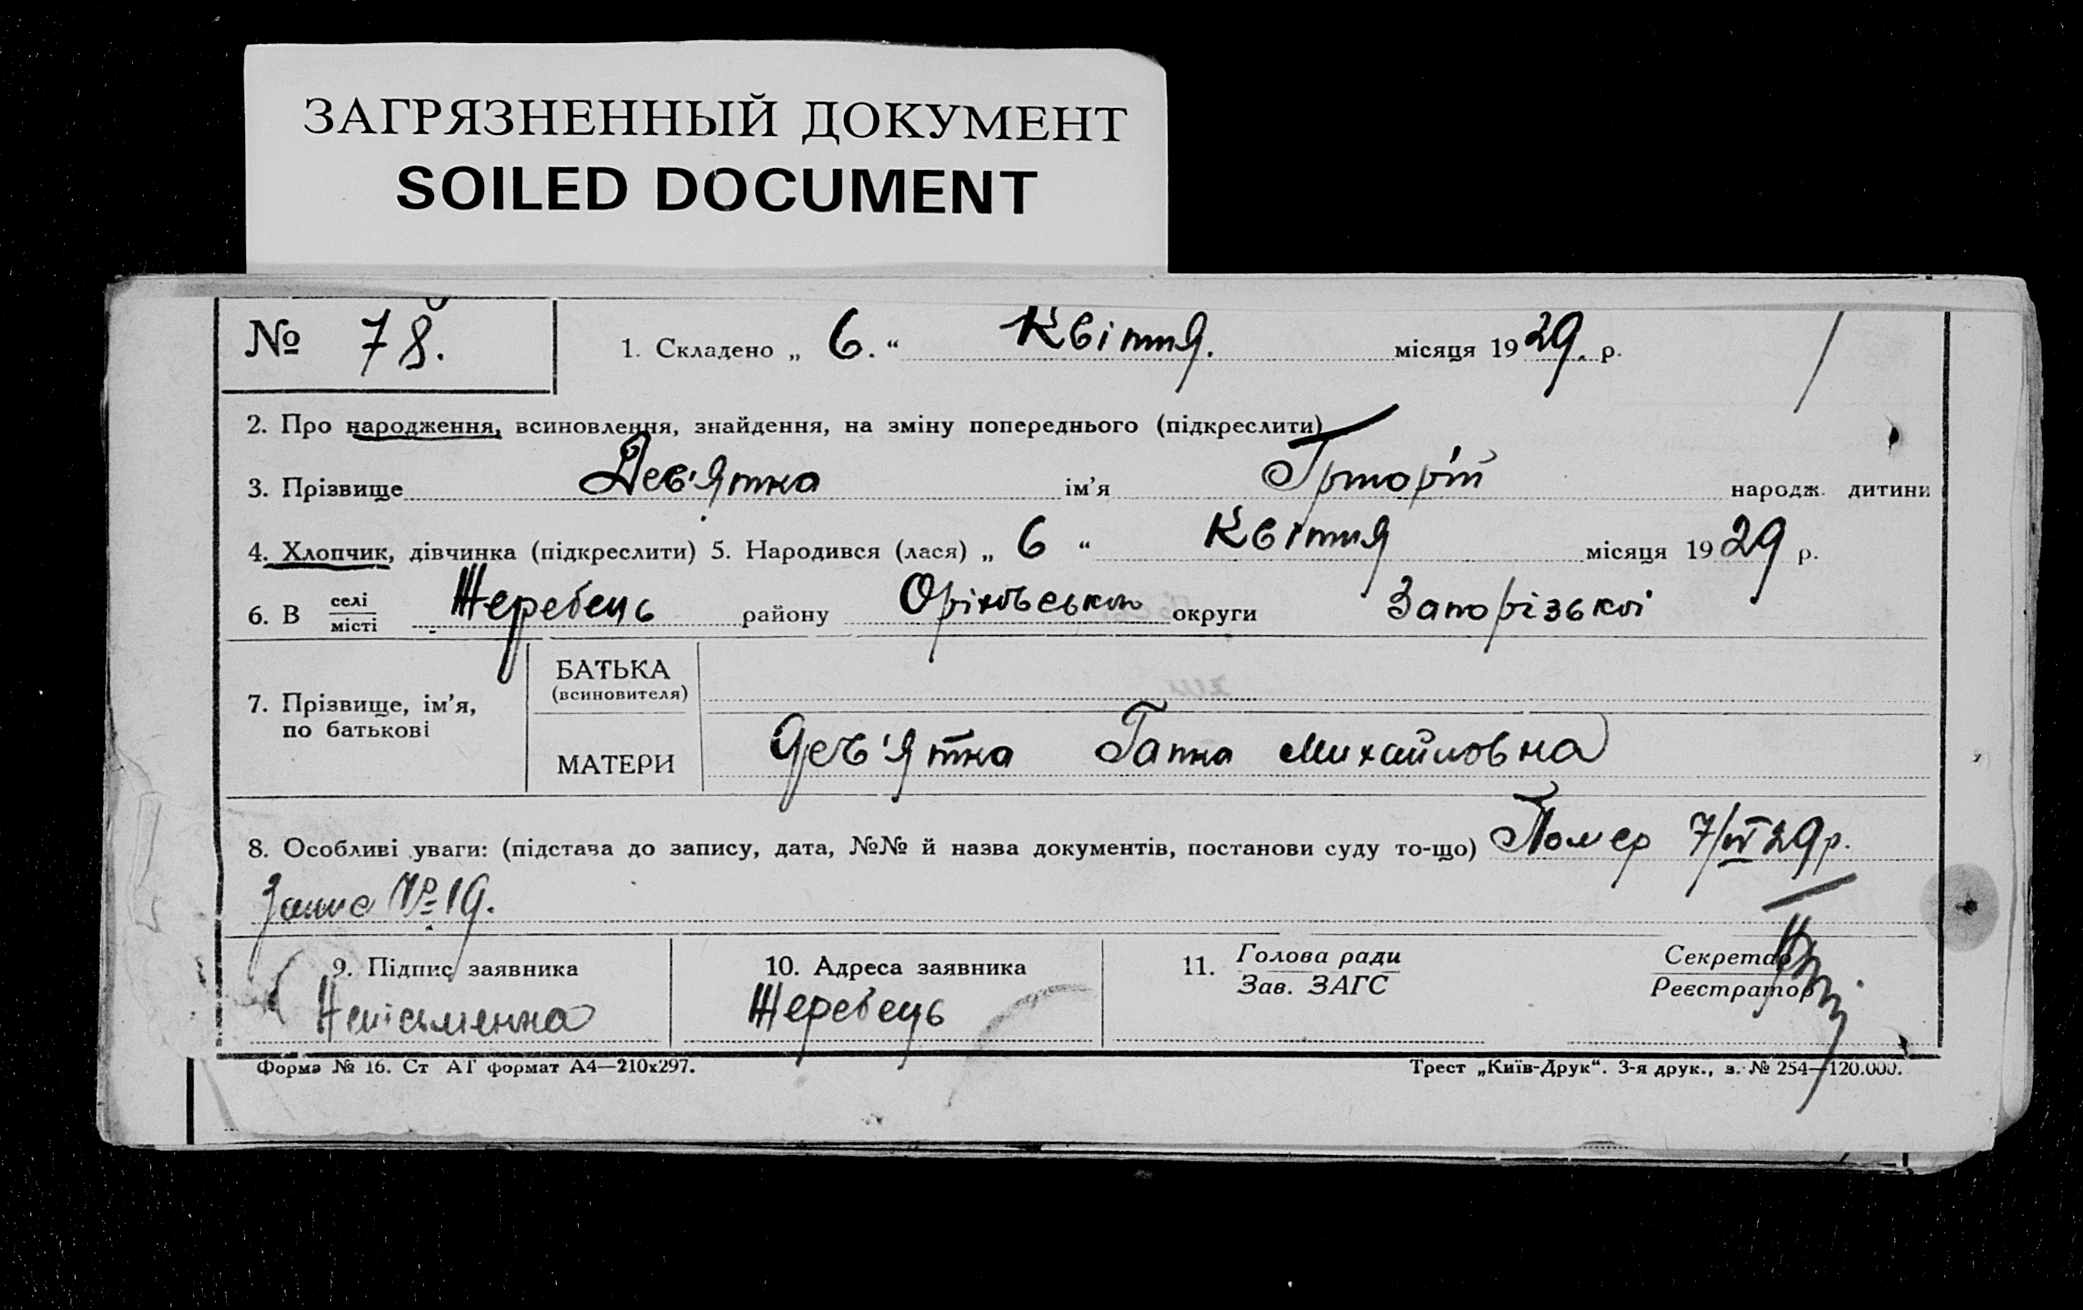 ЗАГРЯЗНЕННЫЙ ДОКУМЕНТ
SOILED DOCUMENT
№ 78. 1. Складено „ 6. “ Квітня. місяця 1929. р.
2. Про народження, всиновлення, знайдення, на зміну попереднього (підкреслити)
3. Прізвище Дев'ятка ім'я Григорій народж. дитини
4. Хлопчик, дівчинка (підкреслити) 5. Народився (лася) „ 6 “ Квітня місяця 1929 р.
6. В селі місті Жеребець району Оріхівського округи Запорізької
7. Прізвище, ім'я, по батькові
БАТЬКА
(всиновителя)
МАТЕРИ Дев'ятка Гапка Михайловна
8. Особливі уваги: (підстава до запису, дата, №№ й назва документів, постанови суду то-що) Помер 7/IV 29р.
Запис № 19.
9. Підпис заявника 10. Адреса заявника 11. Голова ради Секретар
Зав. ЗАГС Реєстратор
Неписьменна Жеребець
Форма № 16. Ст АГ формат А4—210х297. Трест „Київ-Друк“. 3-я друк., з. № 254—120.000.